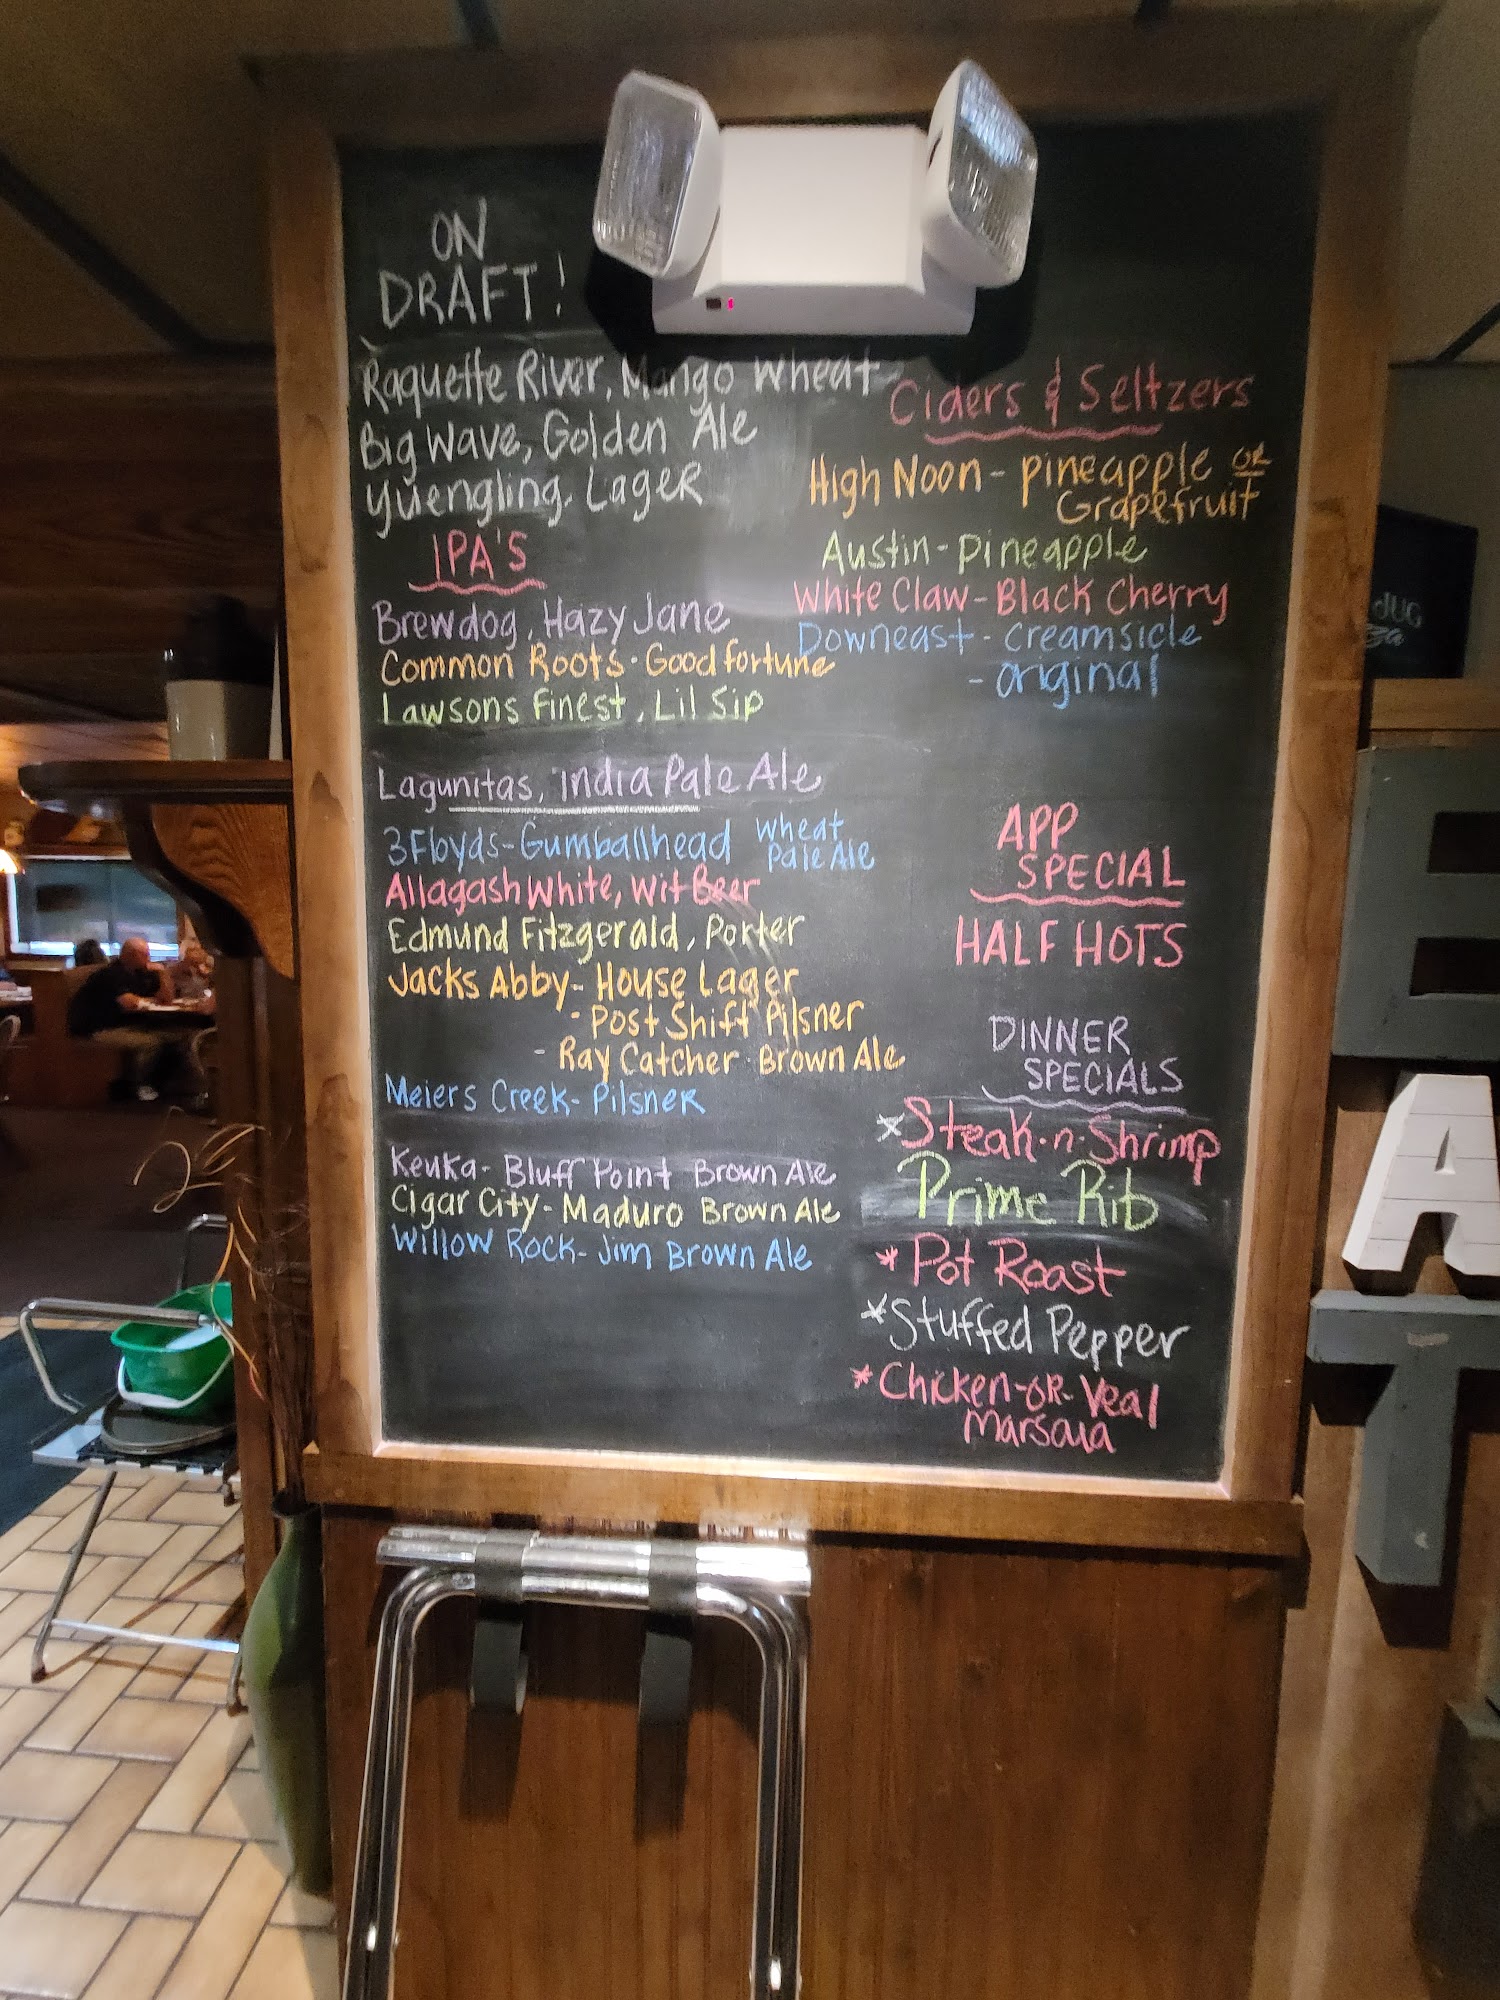 ON
DRAFT!
Raquette River, Mango Wheat
Big Wave, Golden Ale
Yuengling, Lager
IPA'S
Brewdog, Hazy Jane
Common Roots - Good fortune
Lawsons Finest, Lil Sip
Lagunitas, India Pale Ale
3Floyds - Gumballhead Wheat
Pale Ale
Allagash White, Wit Beer
Edmund Fitzgerald, Porter
Jacks Abby - House Lager
- Post Shift Pilsner
- Ray Catcher Brown Ale
Meiers Creek - Pilsner
Keuka - Bluff Point Brown Ale
Cigar City - Maduro Brown Ale
Willow Rock - Jim Brown Ale
Ciders & Seltzers
High Noon - pineapple OR
Grapefruit
Austin - pineapple
White Claw - Black Cherry
Downeast - creamsicle
- original
APP
SPECIAL
HALF HOTS
DINNER
SPECIALS
*Steak-n-Shrimp
Prime Rib
*Pot Roast
*Stuffed Pepper
*Chicken-OR-Veal
Marsala
E
A
T